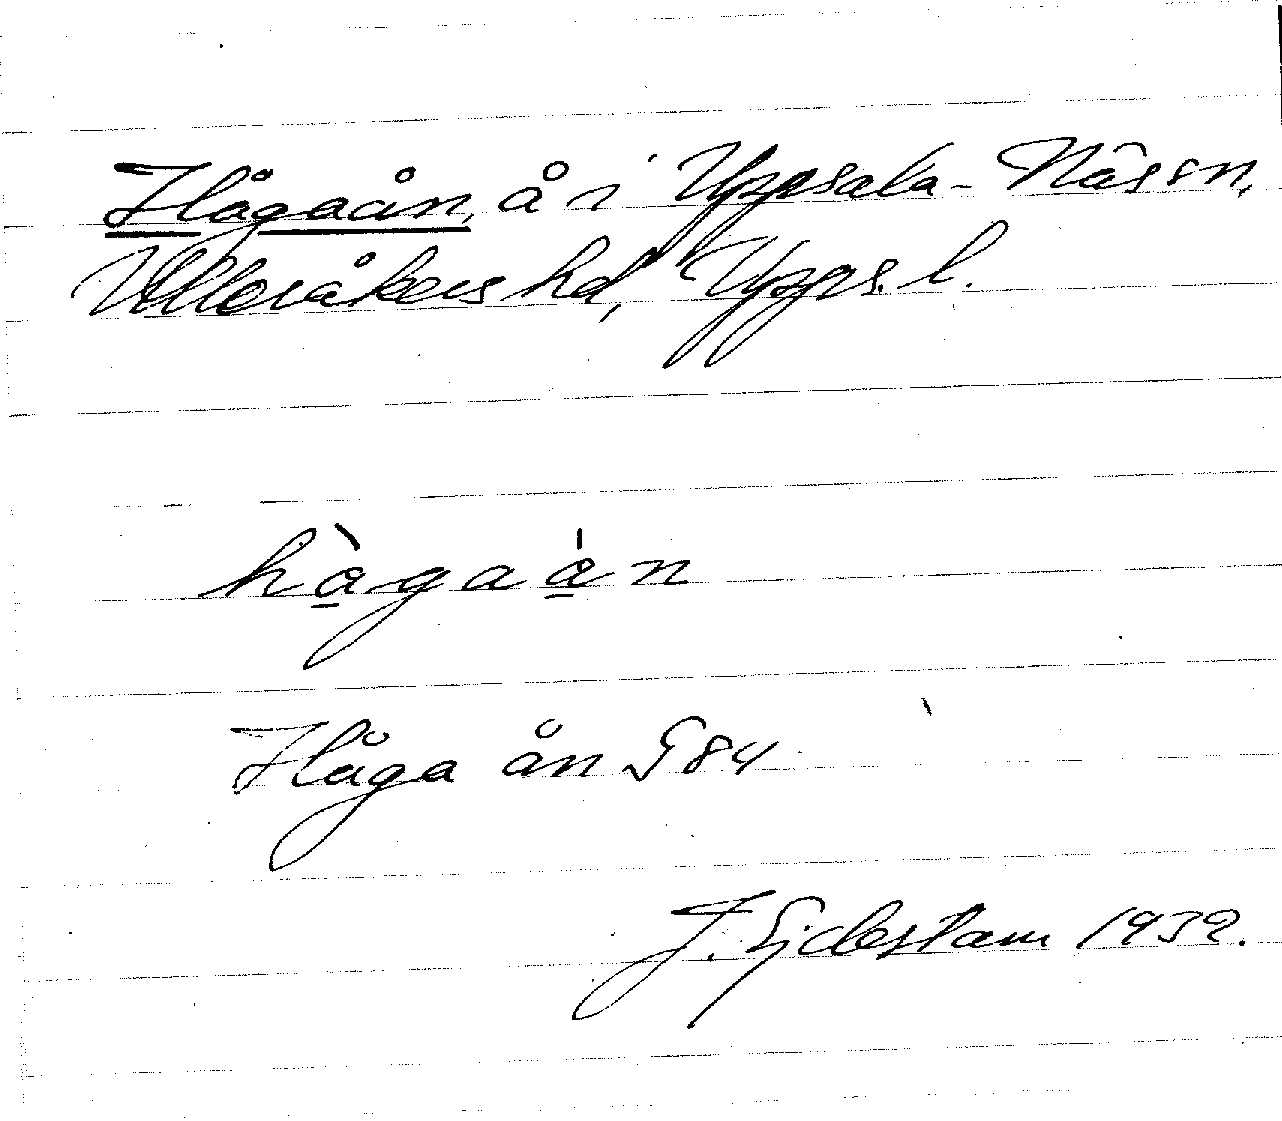 Hågaån, å i Uppsala-Näs sn,
Ulleråkers hd, Upps. l.
hàgaán
Håga ån G84
J. Sjdestam 1932.